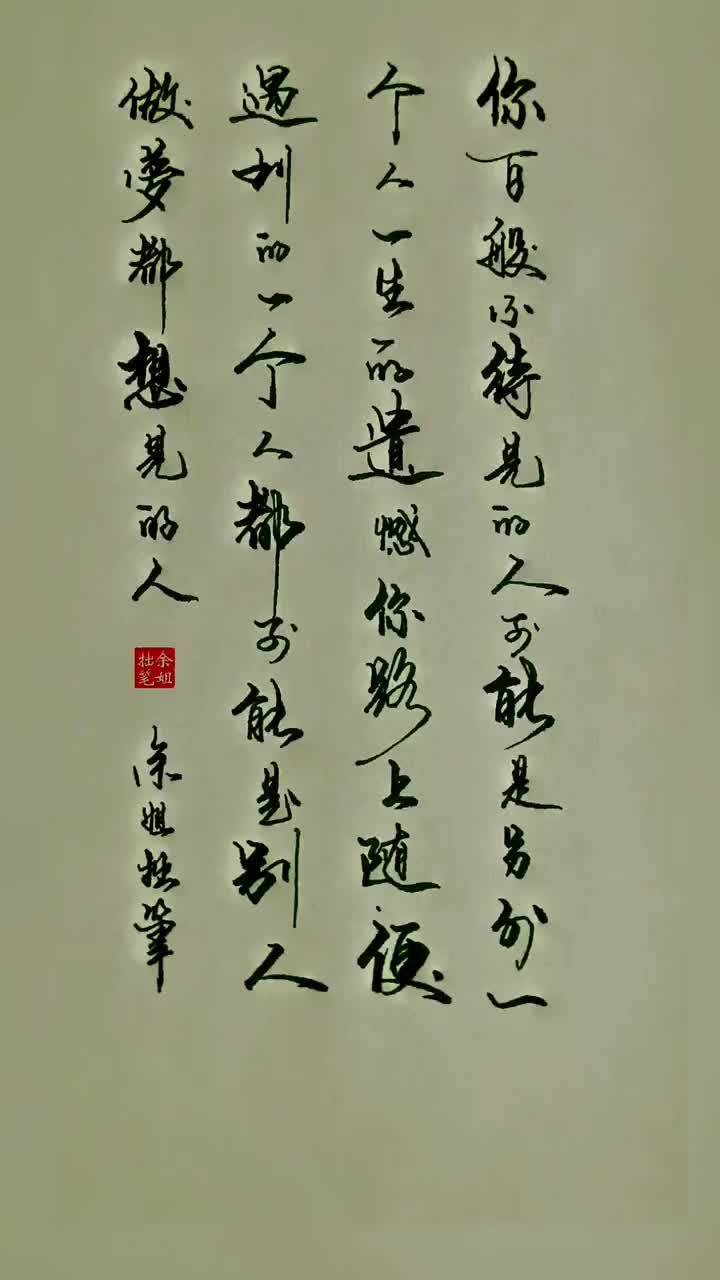 你百般不待見的人可能是另外一
个人一生的遺憾你路上随便
遇到的一个人都可能是别人
做夢都想見的人
余姐拙笔
余姐拙筆